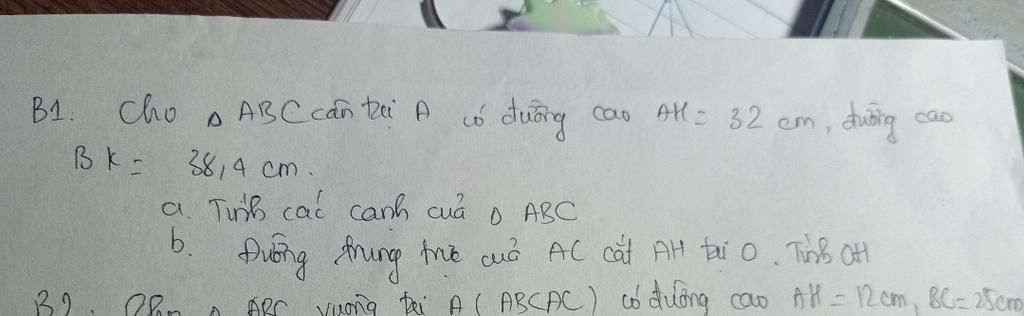 B1. Cho Δ ABC cân tại A có đường cao AH = 32 cm, đường cao
BK = 38,4 cm.
a. Tính các cạnh của Δ ABC
b. Đường trung trực của AC cắt AH tại O. Tính OH
B2. Δ ABC vuông tại A (AB<AC) có đường cao AH = 12cm, BC = 25cm